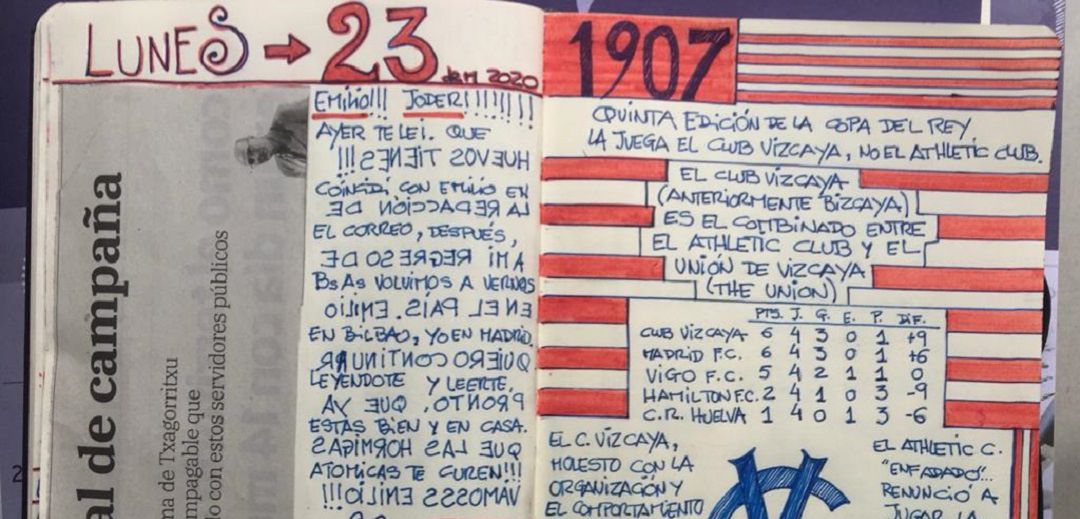 LUNES → 23 de M 2020
al de campaña
ma de Txagorritxu
mpagable que
lo con estos servidores públicos
EMILIO!!! JODER!!!!!!!!
AYER TE LEI. QUE
HUEVOS TIENES!!!
COINCIDI CON EMILIO EN
LA REDACCIÓN DE
EL CORREO, DESPUÉS,
A MI REGRESO DE
BsAs VOLVIMOS A VERNOS
EN EL PAÍS. EMILIO
EN BILBAO, YO EN MADRID.
QUIERO CONTINUAR
LEYENDOTE Y LEERTE,
PRONTO, QUE YA
ESTAS BIEN Y EN CASA.
QUE LAS HORMIGAS
ATOMICAS TE CUREN!!!
VAMOSSS EMILIO!!!
1907
QUINTA EDICIÓN DE LA COPA DEL REY
LA JUEGA EL CLUB VIZCAYA, NO EL ATHLETIC CLUB.
EL CLUB VIZCAYA
(ANTERIORMENTE BIZCAYA)
ES EL COMBINADO ENTRE
EL ATHLETIC CLUB Y EL
UNIÓN DE VIZCAYA
(THE UNION)
PTS. J. G. E. P. DIF.
CLUB VIZCAYA 6 4 3 0 1 +9
MADRID F.C. 6 4 3 0 1 +6
VIGO F.C. 5 4 2 1 1 0
HAMILTON F.C. 2 4 1 0 3 -9
C.R. HUELVA 1 4 0 1 3 -6
EL C. VIZCAYA,
MOLESTO CON LA
ORGANIZACIÓN Y
EL COMPORTAMIENTO
EL ATHLETIC C.
"ENFADADO"...
RENUNCIÓ A
JUGAR LA